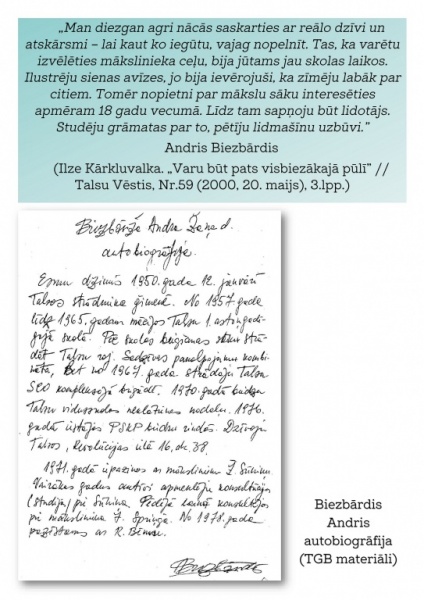 „Man diezgan agri nācās saskarties ar reālo dzīvi un
atskārsmi – lai kaut ko iegūtu, vajag nopelnīt. Tas, ka varētu
izvēlēties mākslinieka ceļu, bija jūtams jau skolas laikos.
Ilustrēju sienas avīzes, jo bija ievērojuši, ka zīmēju labāk par
citiem. Tomēr nopietni par mākslu sāku interesēties
apmēram 18 gadu vecumā. Līdz tam sapņoju būt lidotājs.
Studēju grāmatas par to, pētīju lidmašīnu uzbūvi.”
Andris Biezbārdis
(Ilze Kārkluvalka. „Varu būt pats visbiezākajā pūlī” //
Talsu Vēstis, Nr.59 (2000, 20. maijs), 3.lpp.)
Biezbārža Andra Žaņa d.
autobiogrāfija.
Esmu dzimis 1950. gada 12. janvārī
Talsos strādnieka ģimenē. No 1957. gada
līdz 1965. gadam mācījos Talsu 1. astoņgadī-
gajā skolā. Pēc skolas beigšanas sāku strā-
dāt Talsu raj. Sadzīves pakalpojumu kombi-
nātā, bet no 1967. gada strādāju Talsu
SCO kompleksajā brigādē. 1970. gadā beidzu
Talsu vidusskolas neklātienes nodaļu. 1976.
gadā iestājos PSKP biedru rindās. Dzīvoju
Talsos, Revolūcijas ielā 16, dz. 38.
1971. gadā iepazinos ar mākslinieku Ž. Sūniņu.
Vairākus gadus apmeklēju konsultācijas
(studiju) pie Sūniņa. Pēdējā laikā konsultējos
pie mākslinieka J. Spriņģa. No 1978. gada
pazīstams ar R. Bēmu.
Biezbārdis
Biezbārdis
Andris
autobiogrāfija
(TGB materiāli)